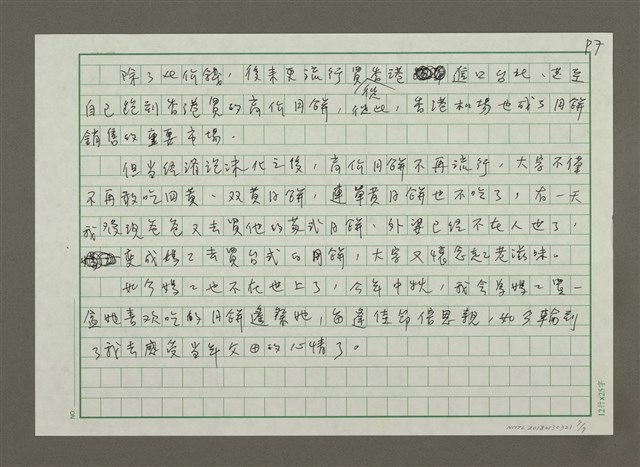 P7
除了比價錢，後來更流行買從香港進口台北、甚至
自己跑到香港買的高價月餅，從此，香港机場也成了月餅
銷售的重要市場。
但當经济泡沫化之後，高價月餅不再流行，大家不僅
不再敢吃四黃、双黄月餅，連單黄月餅也不吃了，有一天
我發現爸爸又去買他的蘇式月餅，外婆已经不在人世了，
變成媽媽去買台式的月餅，大家又懷念起老滋味。
如今媽媽也不在世上了，今年中秋，我会為媽媽買一
盒她喜欢吃的月餅遙祭她，每逢佳節倍思親，如今輪到
了我去感受當年父母的心情了。
NO.
12行×25字